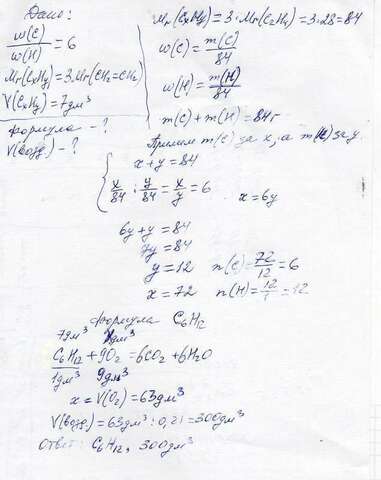 Дано:
w(C)/w(H) = 6
Mr(CxHy) = 3·Mr(CH2=CH2)
V(CxHy) = 7 дм³
Формула - ?
V(возд) - ?
Mr(CxHy) = 3·Mr(C2H4) = 3·28 = 84
w(C) = m(C)/84
w(H) = m(H)/84
m(C) + m(H) = 84 г
Примем m(C) за x, а m(H) за y.
{ x + y = 84
x/84 : y/84 = x/y = 6 x = 6y
6y + y = 84
7y = 84
y = 12 n(C) = 72/12 = 6
x = 72 n(H) = 12/1 = 12
Формула C6H12
7дм³ xдм³
C6H12 + 9O2 = 6CO2 + 6H2O
1дм³ 9дм³
x = V(O2) = 63дм³
V(возд) = 63дм³ : 0,21 = 300дм³
Ответ: C6H12, 300дм³